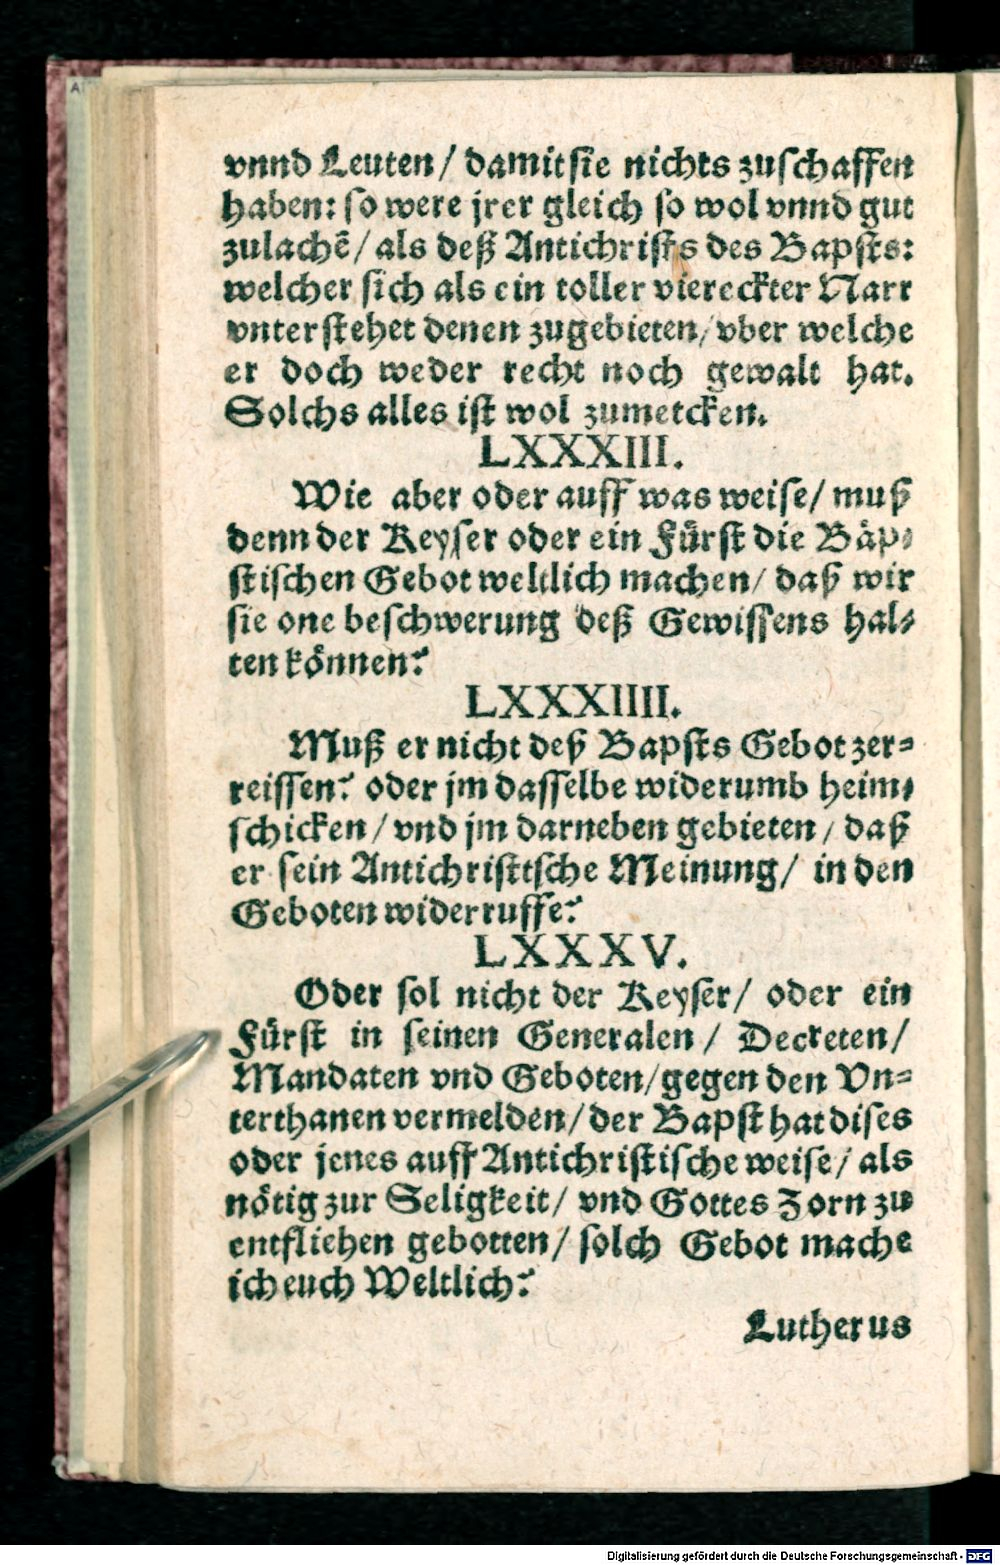 vnnd Leuten / damit sie nichts zuschaffen
haben: so were jrer gleich so wol vnnd gut
zulachē / als deß Antichrists des Bapsts:
welcher sich als ein toller viereckter Narr
vnterstehet denen zugebieten / vber welche
er doch weder recht noch gewalt hat.
Solchs alles ist wol zumetcken.
LXXXIII.
Wie aber oder auff was weise / muß
denn der Keyser oder ein Fürst die Bäp-
stischen Gebot weltlich machen / daß wir
sie one beschwerung deß Gewissens hal-
ten können?
LXXXIIII.
Muß er nicht deß Bapsts Gebot zer-
reissen? oder jm dasselbe widerumb heim-
schicken / vnd jm darneben gebieten / daß
er sein Antichristtsche Meinung / in den
Geboten widerruffe?
LXXXV.
Oder sol nicht der Keyser / oder ein
Fürst in seinen Generalen / Decreten /
Mandaten vnd Geboten / gegen den Vn-
terthanen vermelden / der Bapst hat dises
oder jenes auff Antichristische weise / als
nötig zur Seligkeit / vnd Gottes Zorn zu
entfliehen gebotten / solch Gebot mache
ich euch Weltlich?
Lutherus
Digitalisierung gefördert durch die Deutsche Forschungsgemeinschaft - DFG